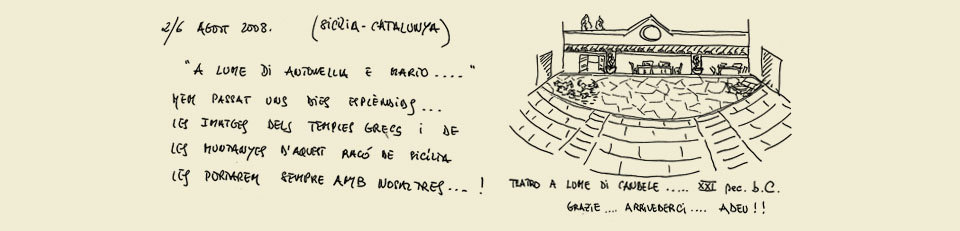 2/6 AGOST 2008. (SICÍLIA - CATALUNYA)
"A LUME DI ANTONELLA E MARIO....."
HEM PASSAT UNS DIES ESPLÈNDIDS...
LES IMATGES DELS TEMPLES GRECS I DE
LES MUNTANYES D'AQUEST RACÓ DE SICÍLIA
LES PORTAREM SEMPRE AMB NOSALTRES....!
TEATRO A LUME DI CANDELE ..... XXI sec. d.C.
GRAZIE .... ARRIVEDERCI .... ADEU!!